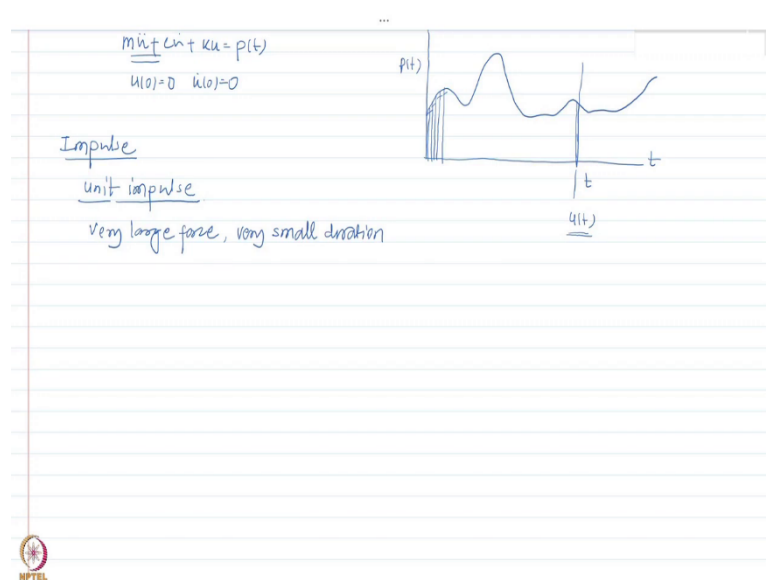 ...
mü + cu̇ + ku = p(t)
u(0)=0 u̇(0)=0
p(t)
t
t
u(t)
Impulse
unit impulse
very large force, very small duration
NPTEL